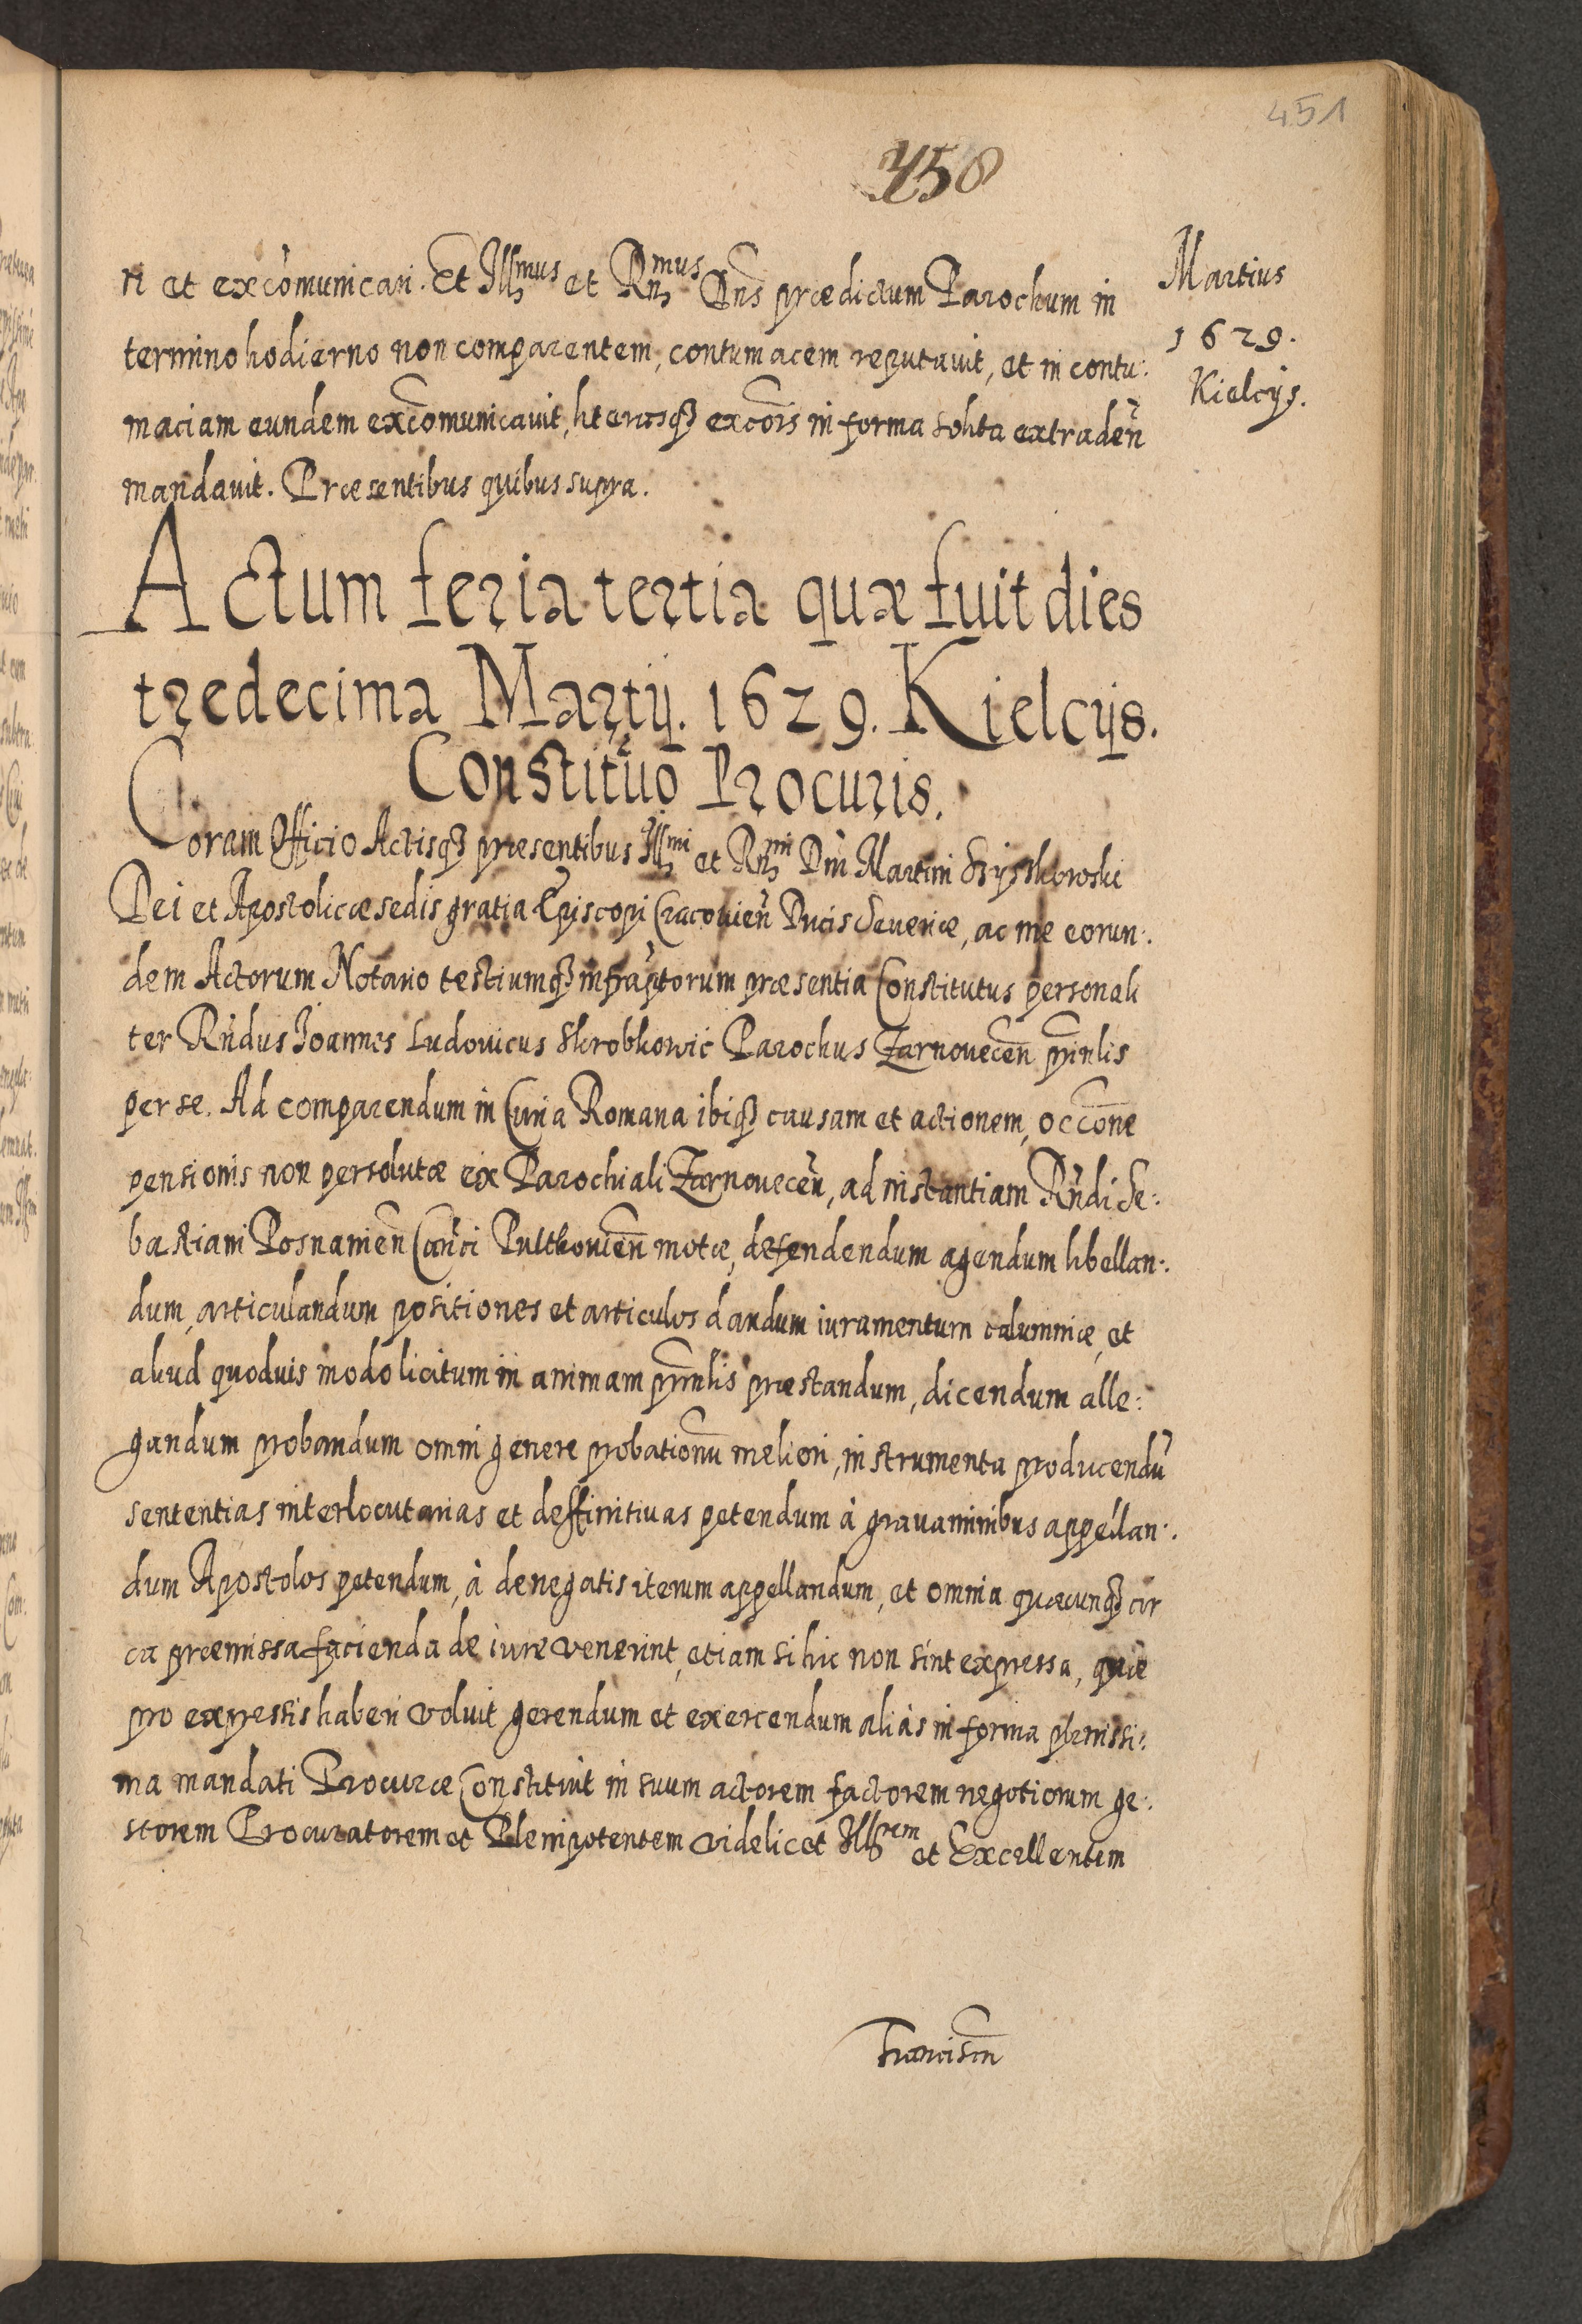 451
458
Martius
1629.
Kielcijs.
ri et excom̃unicari. Et Illmus et Rñmus Dñs prædictum Parochum in
termino hodierno non comparentem, contumacem reputauit, et in contu:
maciam eundem excom̃unicauit, literasq3 excõis in forma solita extradeñ
mandauit. Præsentibus quibus supra.
Actum feria tertia quæ fuit dies
tredecima Martij. 1629. Kielcijs.
Constituõ Procuris.
Coram Officio Actisq3 præsentibus Illmi et Rñmi Dñi Martini Szyszkowski
Dei et Apostolicæ sedis gratia Episcopi Cracouieñ Ducis Seueriæ, ac me eorun:
dem Actorum Notario testiumq3 infraptorum præsentia Constitutus personali
ter Rñdus Joannes Ludouicus Skrobkowic Parochus Zarnoueceñ prñnlis
per se. Ad comparendum in Curia Romana ibiq3 causam et actionem, occõne
pensionis non persolutæ ex Parochiali Zarnoueceñ, ad instantiam Rñdi Se:
bastiani Posnanieñ Cañci Pultouieñ motæ, defendendum agendum libellan:
dum, articulandum positiones et articulos dandum iuramentum calumniæ, et
aliud quoduis modo licitum in animam prñnlis præstandum, dicendum alle:
gandum probandum omni genere probationũ meliori, instrumenta producendũ
sententias interlocutarias et deffinitiuas petendum à grauaminibus appellan:
dum Apostolos petendum, à denegatis iterum appellandum, et omnia quæcunq3 cir
ca præmissa facienda de iure venerint, etiam si hic non sint expressa, quæ
pro expressis haberi voluit gerendum et exercendum aliàs in forma plenissi:
ma mandati Procuræ Constituit in suum actorem factorem negotiorum ge:
storem Procuratorem et Plenipotentem videlicet Illrem et Excellentem
Franciscũ